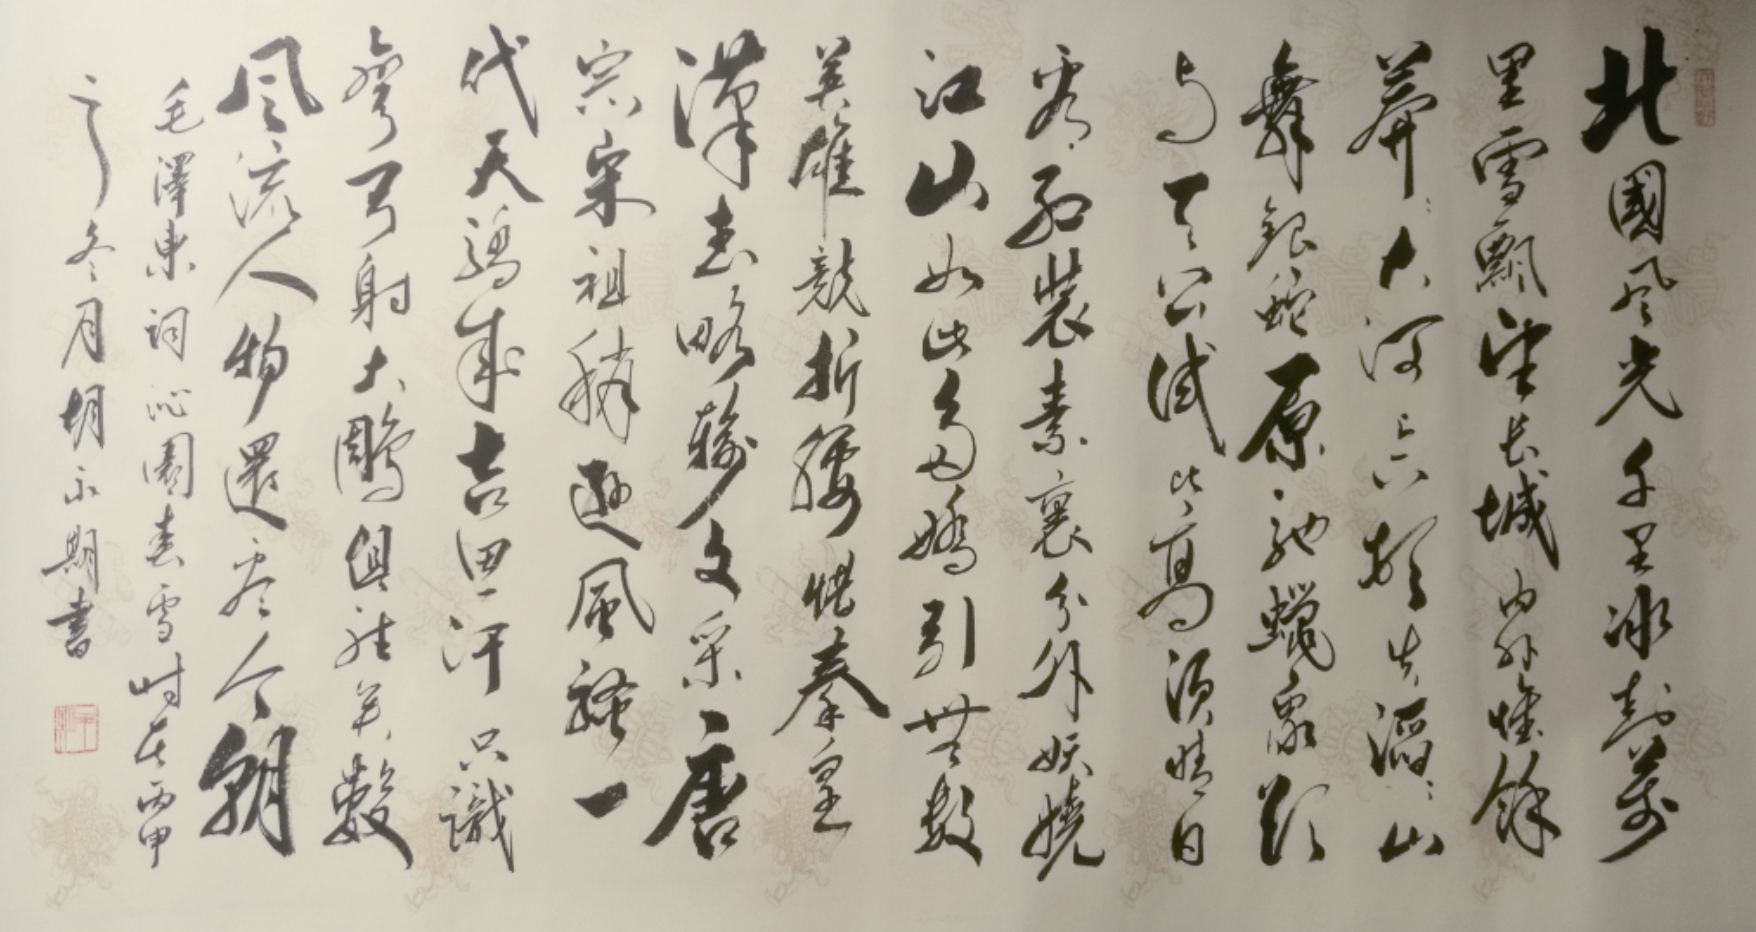 北國风光千里冰封萬
里雪飄望长城内外惟餘
莽〻大河上下頓失滔〻山
舞銀蛇原馳蠟象欲
与天公試比高須晴日
看红裝素裹分外妖嬈
江山如此多嬌引無数
英雄競折腰惜秦皇
漢武略輸文采唐
宗宋祖稍遜風騷一
代天驕成吉思汗只識
彎弓射大鵰俱往矣數
风流人物還看今朝
毛澤東词沁園春雪時在丙申
之冬月胡永期書